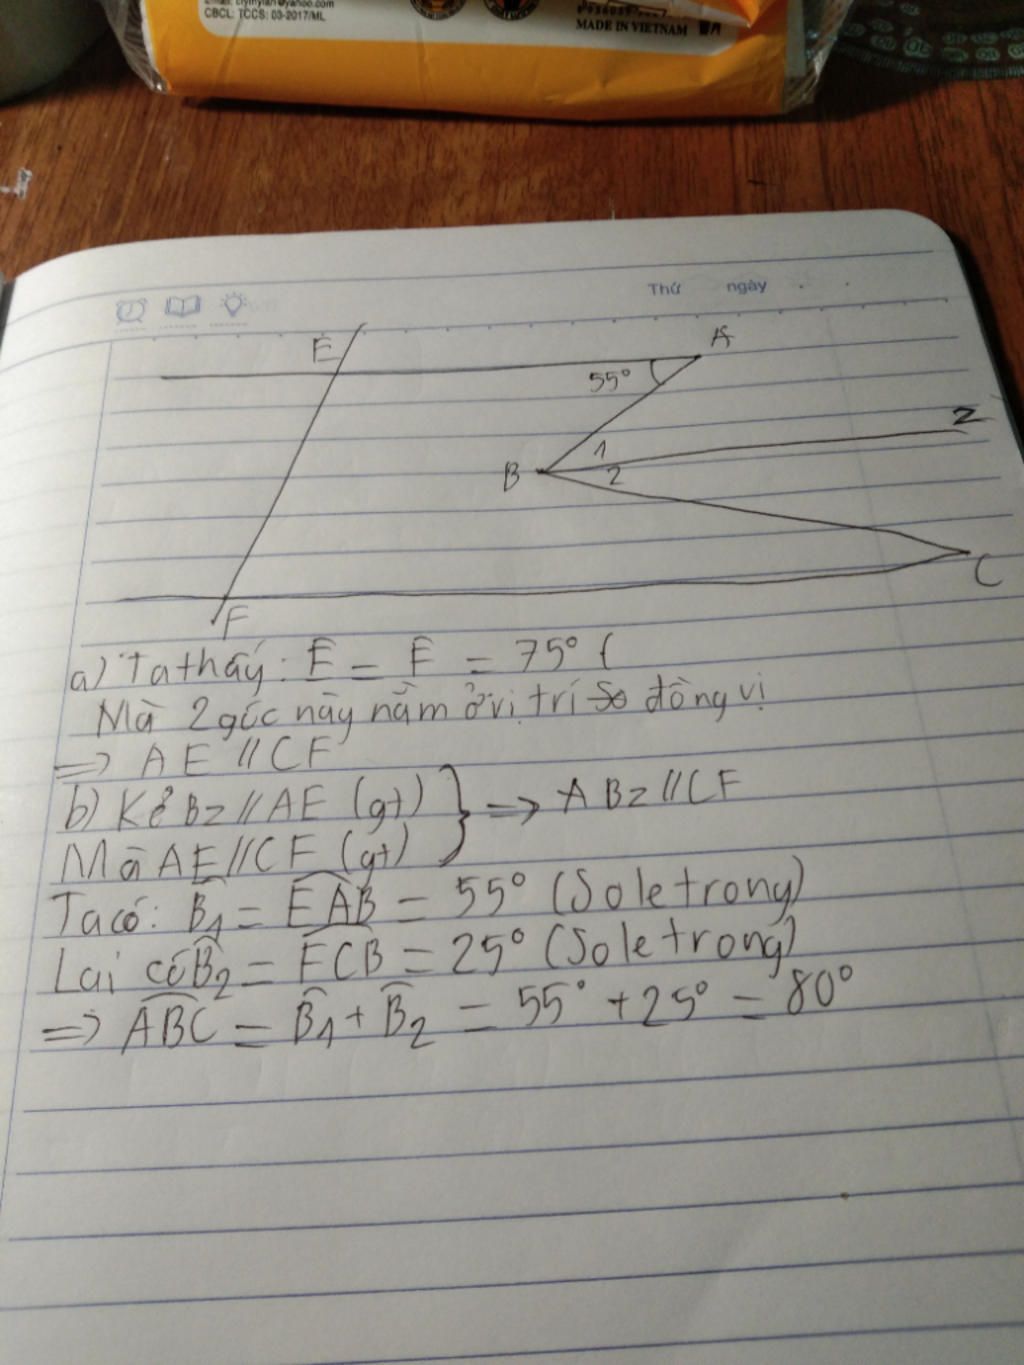 Email: ctymylan@yahoo.com
CBCL: TCCS: 03-2017/ML
MADE IN VIETNAM
Thứ ngày
E
A
55°
1
2
B
Z
C
F
a) Ta thấy: Ê = F̂ = 75° (
Mà 2 góc này nằm ở vị trí so đồng vị
=> AE // CF
b) Kẻ Bz // AE (gt)
Mà AE // CF (gt)
=> A Bz // CF
Ta có: B̂1 = EAB = 55° (So le trong)
Lại có B̂2 = FCB = 25° (So le trong)
=> ABC = B̂1 + B̂2 = 55° + 25° = 80°